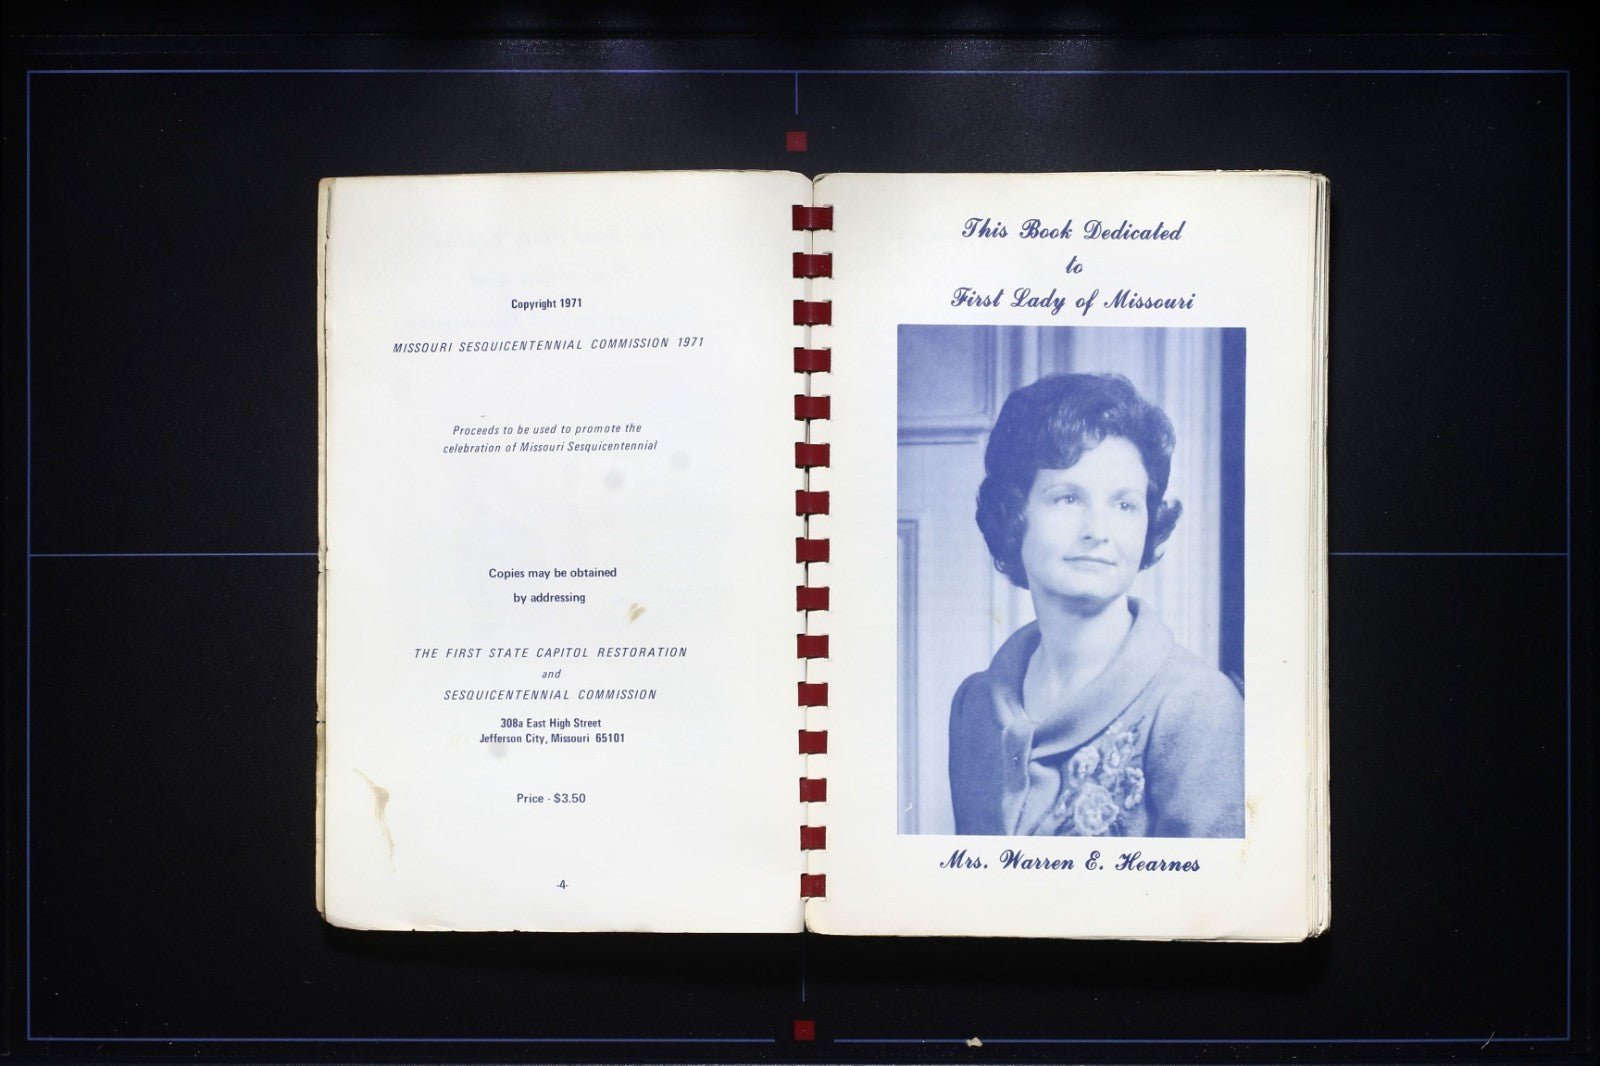 Copyright 1971
MISSOURI SESQUICENTENNIAL COMMISSION 1971
Proceeds to be used to promote the
celebration of Missouri Sesquicentennial
Copies may be obtained
by addressing
THE FIRST STATE CAPITOL RESTORATION
and
SESQUICENTENNIAL COMMISSION
308a East High Street
Jefferson City, Missouri 65101
Price - $3.50
-4-
This Book Dedicated
to
First Lady of Missouri
Mrs. Warren E. Hearnes